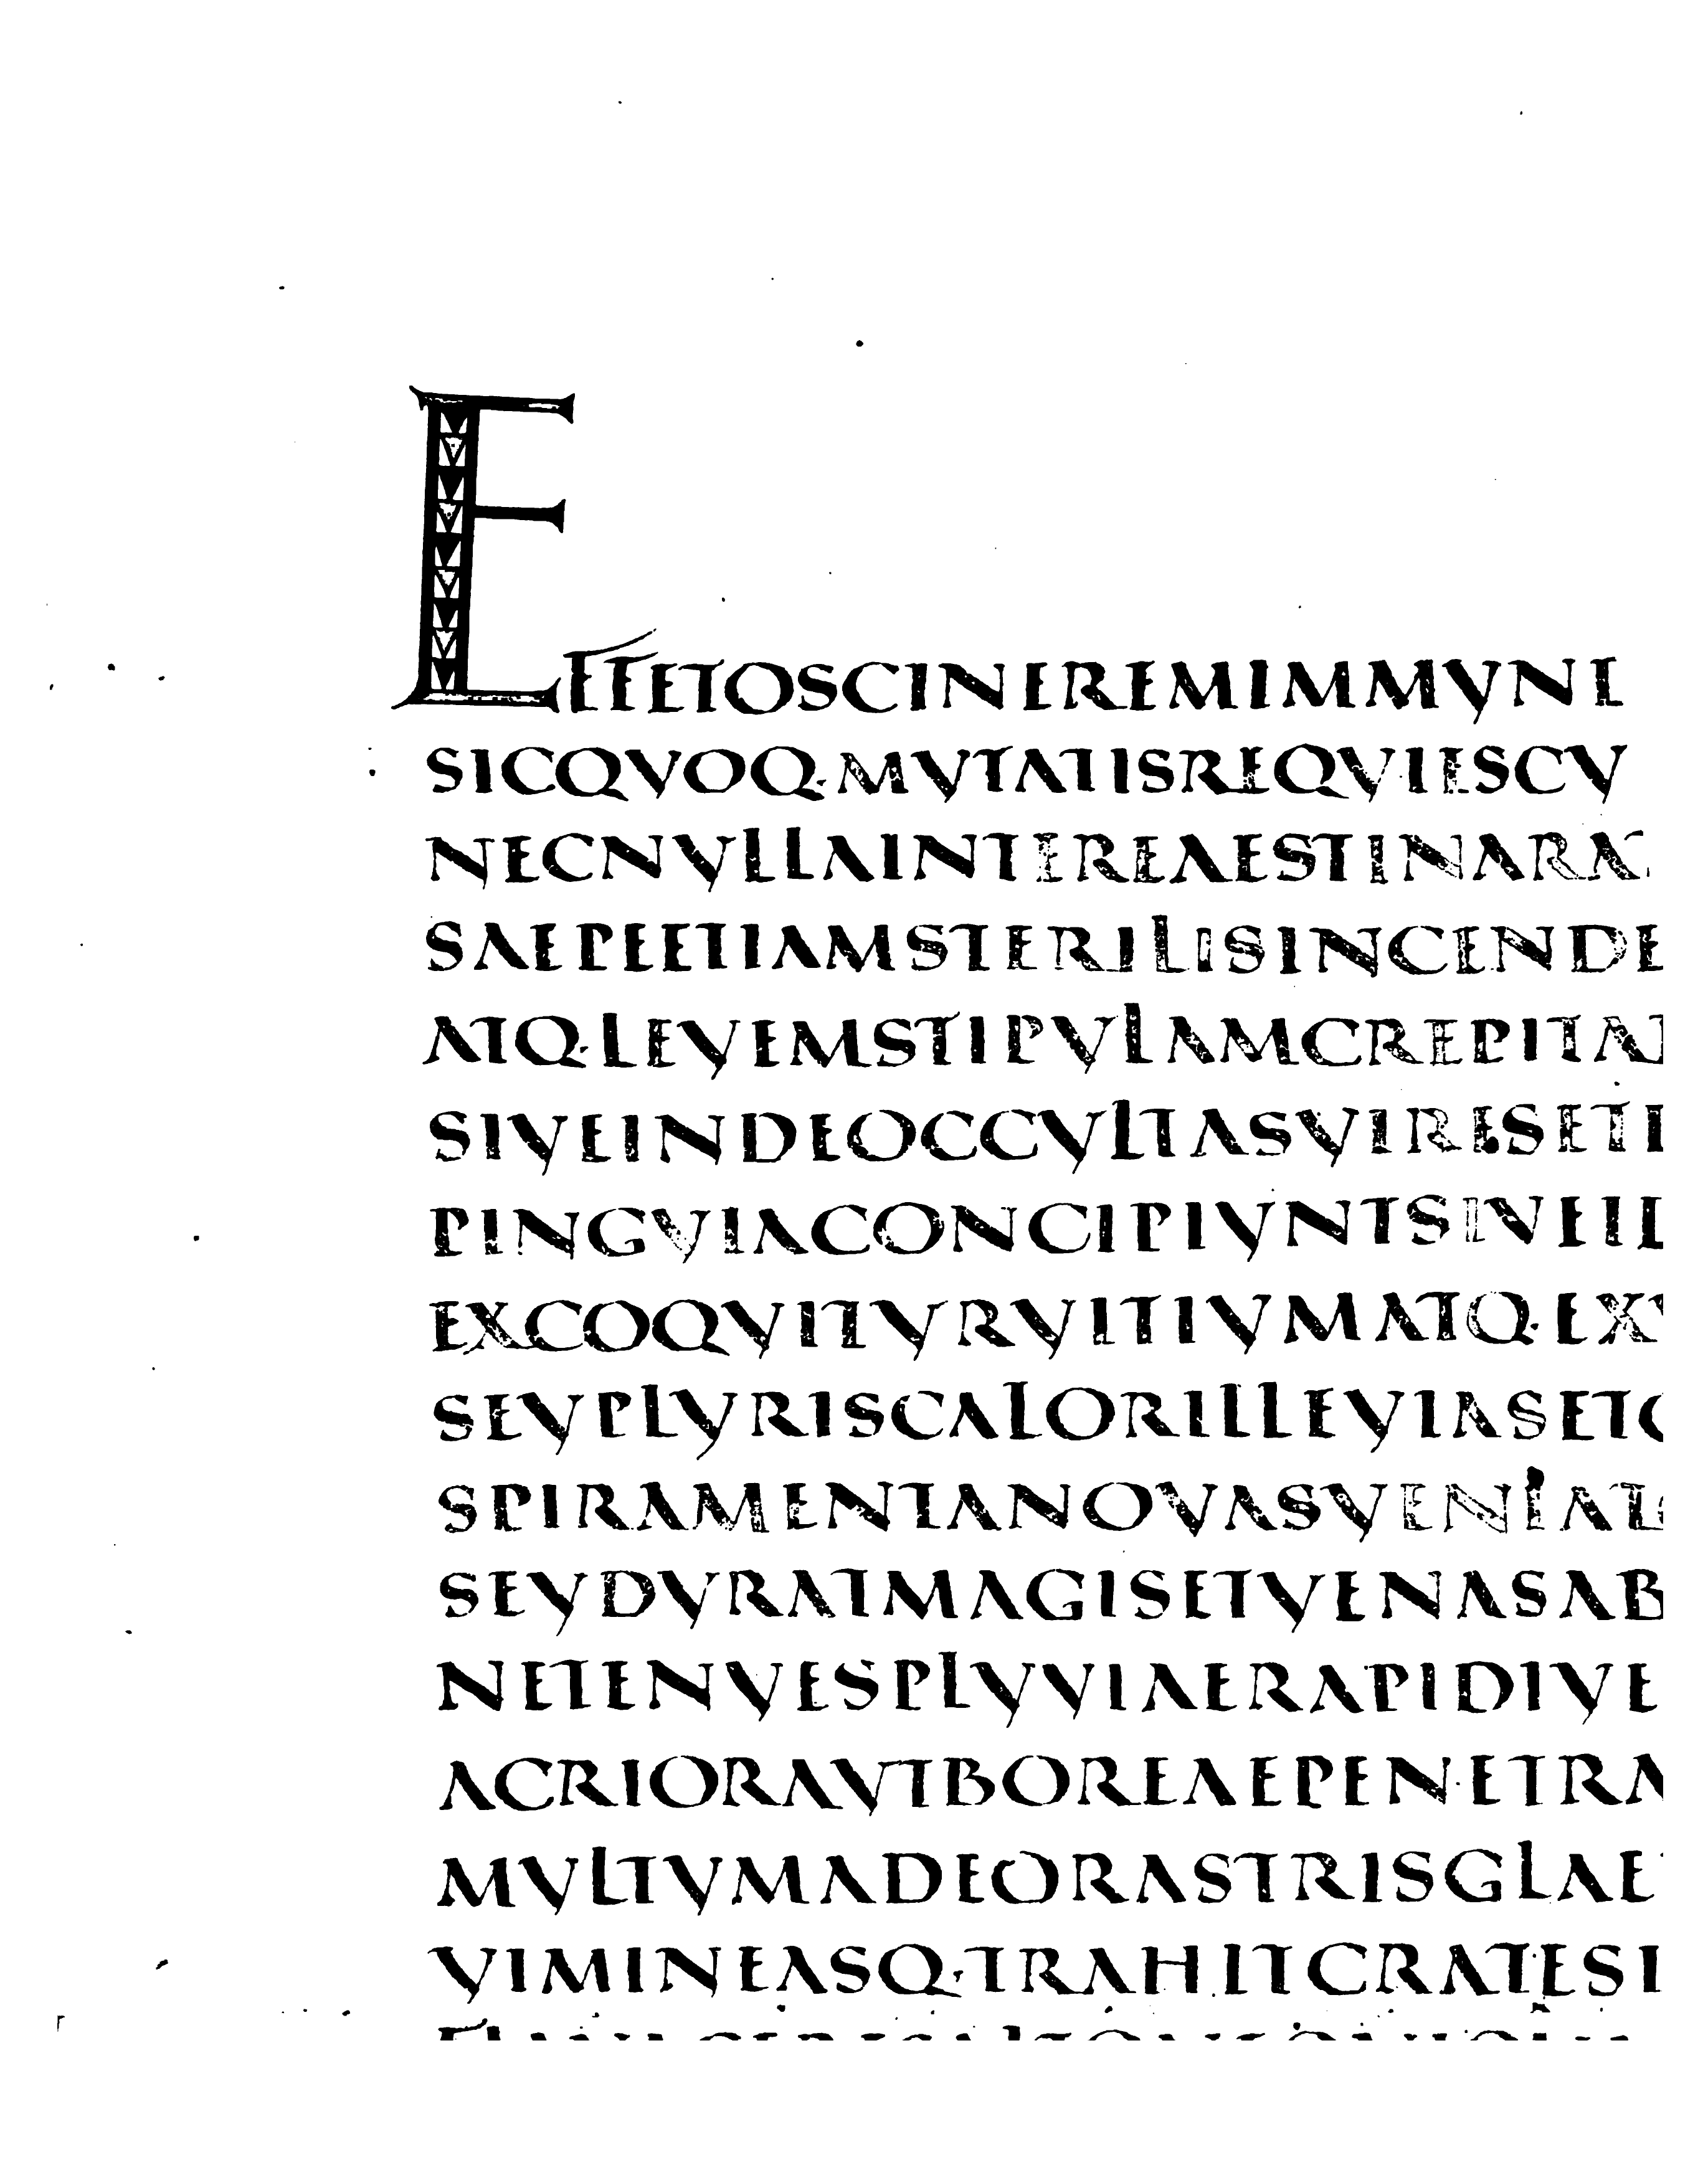 EFFETOSCINEREMIMMVNE
SICQVOQ·MVTATISREQVIESCV
NECNVLLAINTEREAESTINARA
SAEPEETIAMSTERILISINCENDE
ATQ·LEVEMSTIPVLAMCREPITAT
SIVEINDEOCCVLTASVIRESETT
PINGVIACONCIPIVNTSIVEIL
EXCOQVITVRVITIVMATQ·EX
SEVPLVRISCALORILLEVIASETC
SPIRAMENTANOVASVENIAT
SEVDVRATMAGISETVENASAB
NETENVESPLVVIAERAPIDIVE
ACRIORAVTBOREAEPENETRA
MVLTVMADEORASTRISGLAE
VIMINEASQ·TRAHITCRATESI